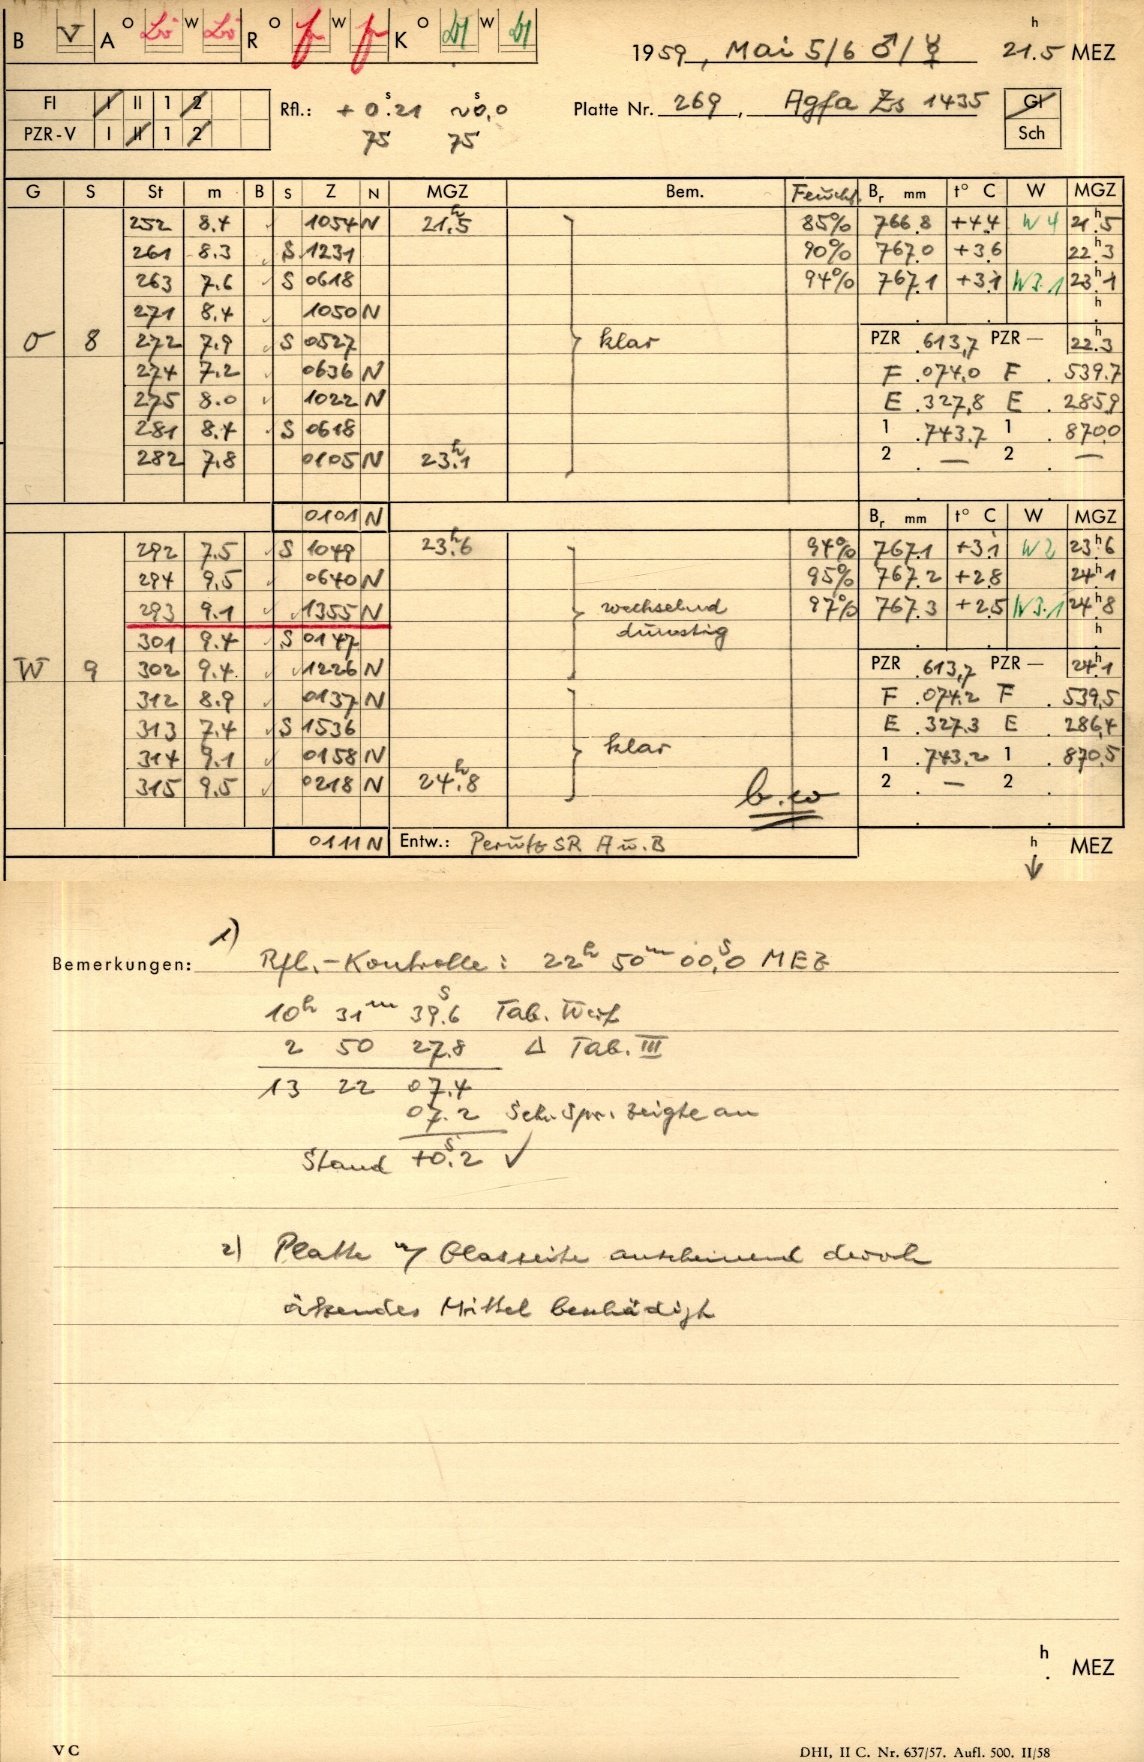 B V A O Lö W Lö R O W K O W
1959, Mai 5/6 ♂/☿ 21.5 h MEZ
FI I II 1 2 Rfl.: + 0.21 s ~0,0 s Platte Nr. 269, Agfa Zs 1435 Gl
PZR-V I II 1 2 75 75 Sch
G S St m B S Z N MGZ Bem. Feucht. Br mm t° C W MGZ
252 8.4 1054 N 21.5 h 85% 766.8 +4.4 W 4 21.5 h
261 8.3 S 1231 90% 767.0 +3.6 22.3 h
263 7.6 S 0618 94% 767.1 +3.1 W 3.1 23.1 h
271 8.4 1050 N h
O 8 272 7.9 S 0527 klar PZR .613,7 PZR — 22.3 h
274 7.2 0636 N F .074.0 F .539.7
275 8.0 1022 N E .327,8 E .285.9
281 8.4 S 0618 1 .743.7 1 870.0
282 7.8 0105 N 23.1 h 2 . — 2 . —
0101 N Br mm t° C W MGZ
292 7.5 S 1049 23.6 h 94% 767.1 +3.1 W 2 23.6 h
294 9,5 0640 N 95% 767.2 +2.8 24.1 h
293 9.1 1355 N wechselnd 97% 767.3 +2.5 W 3.1 24.8 h
301 9.4 S 0147 dunstig h
W 9 302 9.4 1226 N PZR .613,7 PZR — 24.1 h
312 8.9 0137 N F .074.2 F .539,5
313 7.4 S 1536 E .327.3 E .286,4
314 9.1 0158 N klar 1 .743.2 1 870.5
315 9.5 0218 N 24.8 h b.w 2 . — 2 .
0111 N Entw.: Perutz SR A u. B h MEZ
↓
Bemerkungen: 1) Rfl.-Kontrolle: 22h 50m 00,0s MEZ
10h 31m 39.6s Tab. Wert
2 50 27.8 Δ Tab. III
13 22 07.4
07.2 Sch. Spr. zeigte an
Stand +0.2s ✓
2) Platte a/ Glasseite anscheinend durch
ätzendes Mittel beschädigt
h
. MEZ
V C DHI, II C. Nr. 637/57. Aufl. 500. II/58